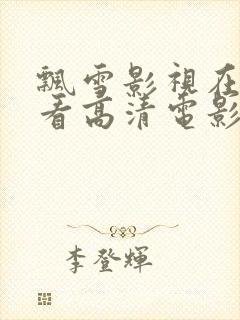 飄雪影視在
看高清電影
李登輝